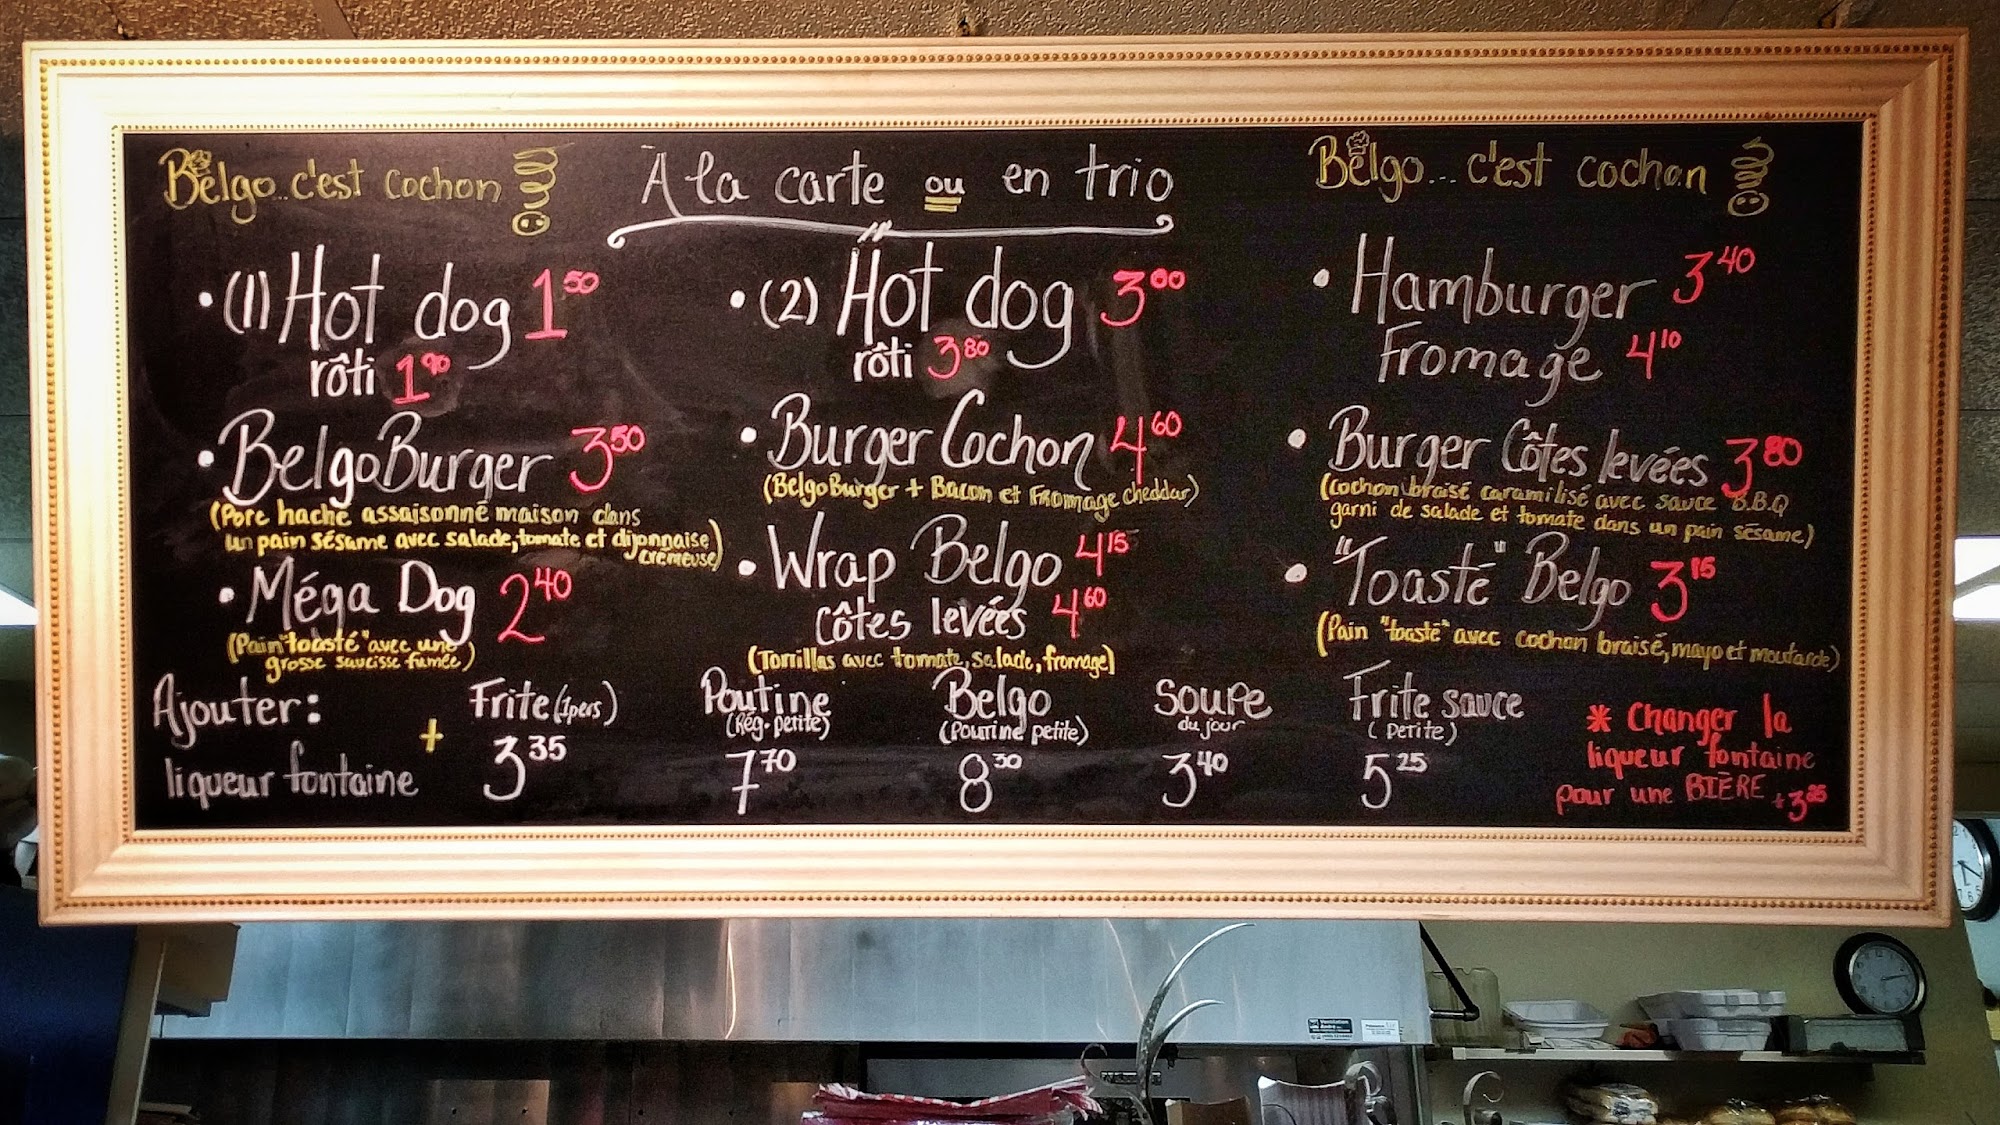 Belgo...c'est cochon
À la carte ou en trio
Belgo... c'est cochon
• (1) Hot dog 1 50
rôti 1 90
• (2) Hot dog 3 00
rôti 3 80
• Hamburger 3 40
Fromage 4 10
• BelgoBurger 3 50
(Porc haché assaisonné maison dans
un pain sésame avec salade, tomate et dijonnaise
crémeuse)
• Burger Cochon 4 60
(BelgoBurger + Bacon et Fromage cheddar)
• Burger Côtes levées 3 80
(cochon braisé caramilisé avec sauce B.B.Q
garni de salade et tomate dans un pain sésame)
• Méga Dog 2 40
(Pain "toasté" avec une
grosse saucisse fumée)
• Wrap Belgo 4 15
côtes levées 4 60
(Tortillas avec tomate, salade, fromage)
• "Toasté" Belgo 3 15
(Pain "toasté" avec cochon braisé, mayo et moutarde)
Ajouter:
liqueur fontaine
+
Frite (1pers)
3 35
Poutine
(Rég. petite)
7 70
Belgo
(Poutine petite)
8 30
Soupe
du jour
3 40
Frite sauce
(petite)
5 25
* Changer la
liqueur fontaine
pour une BIÈRE